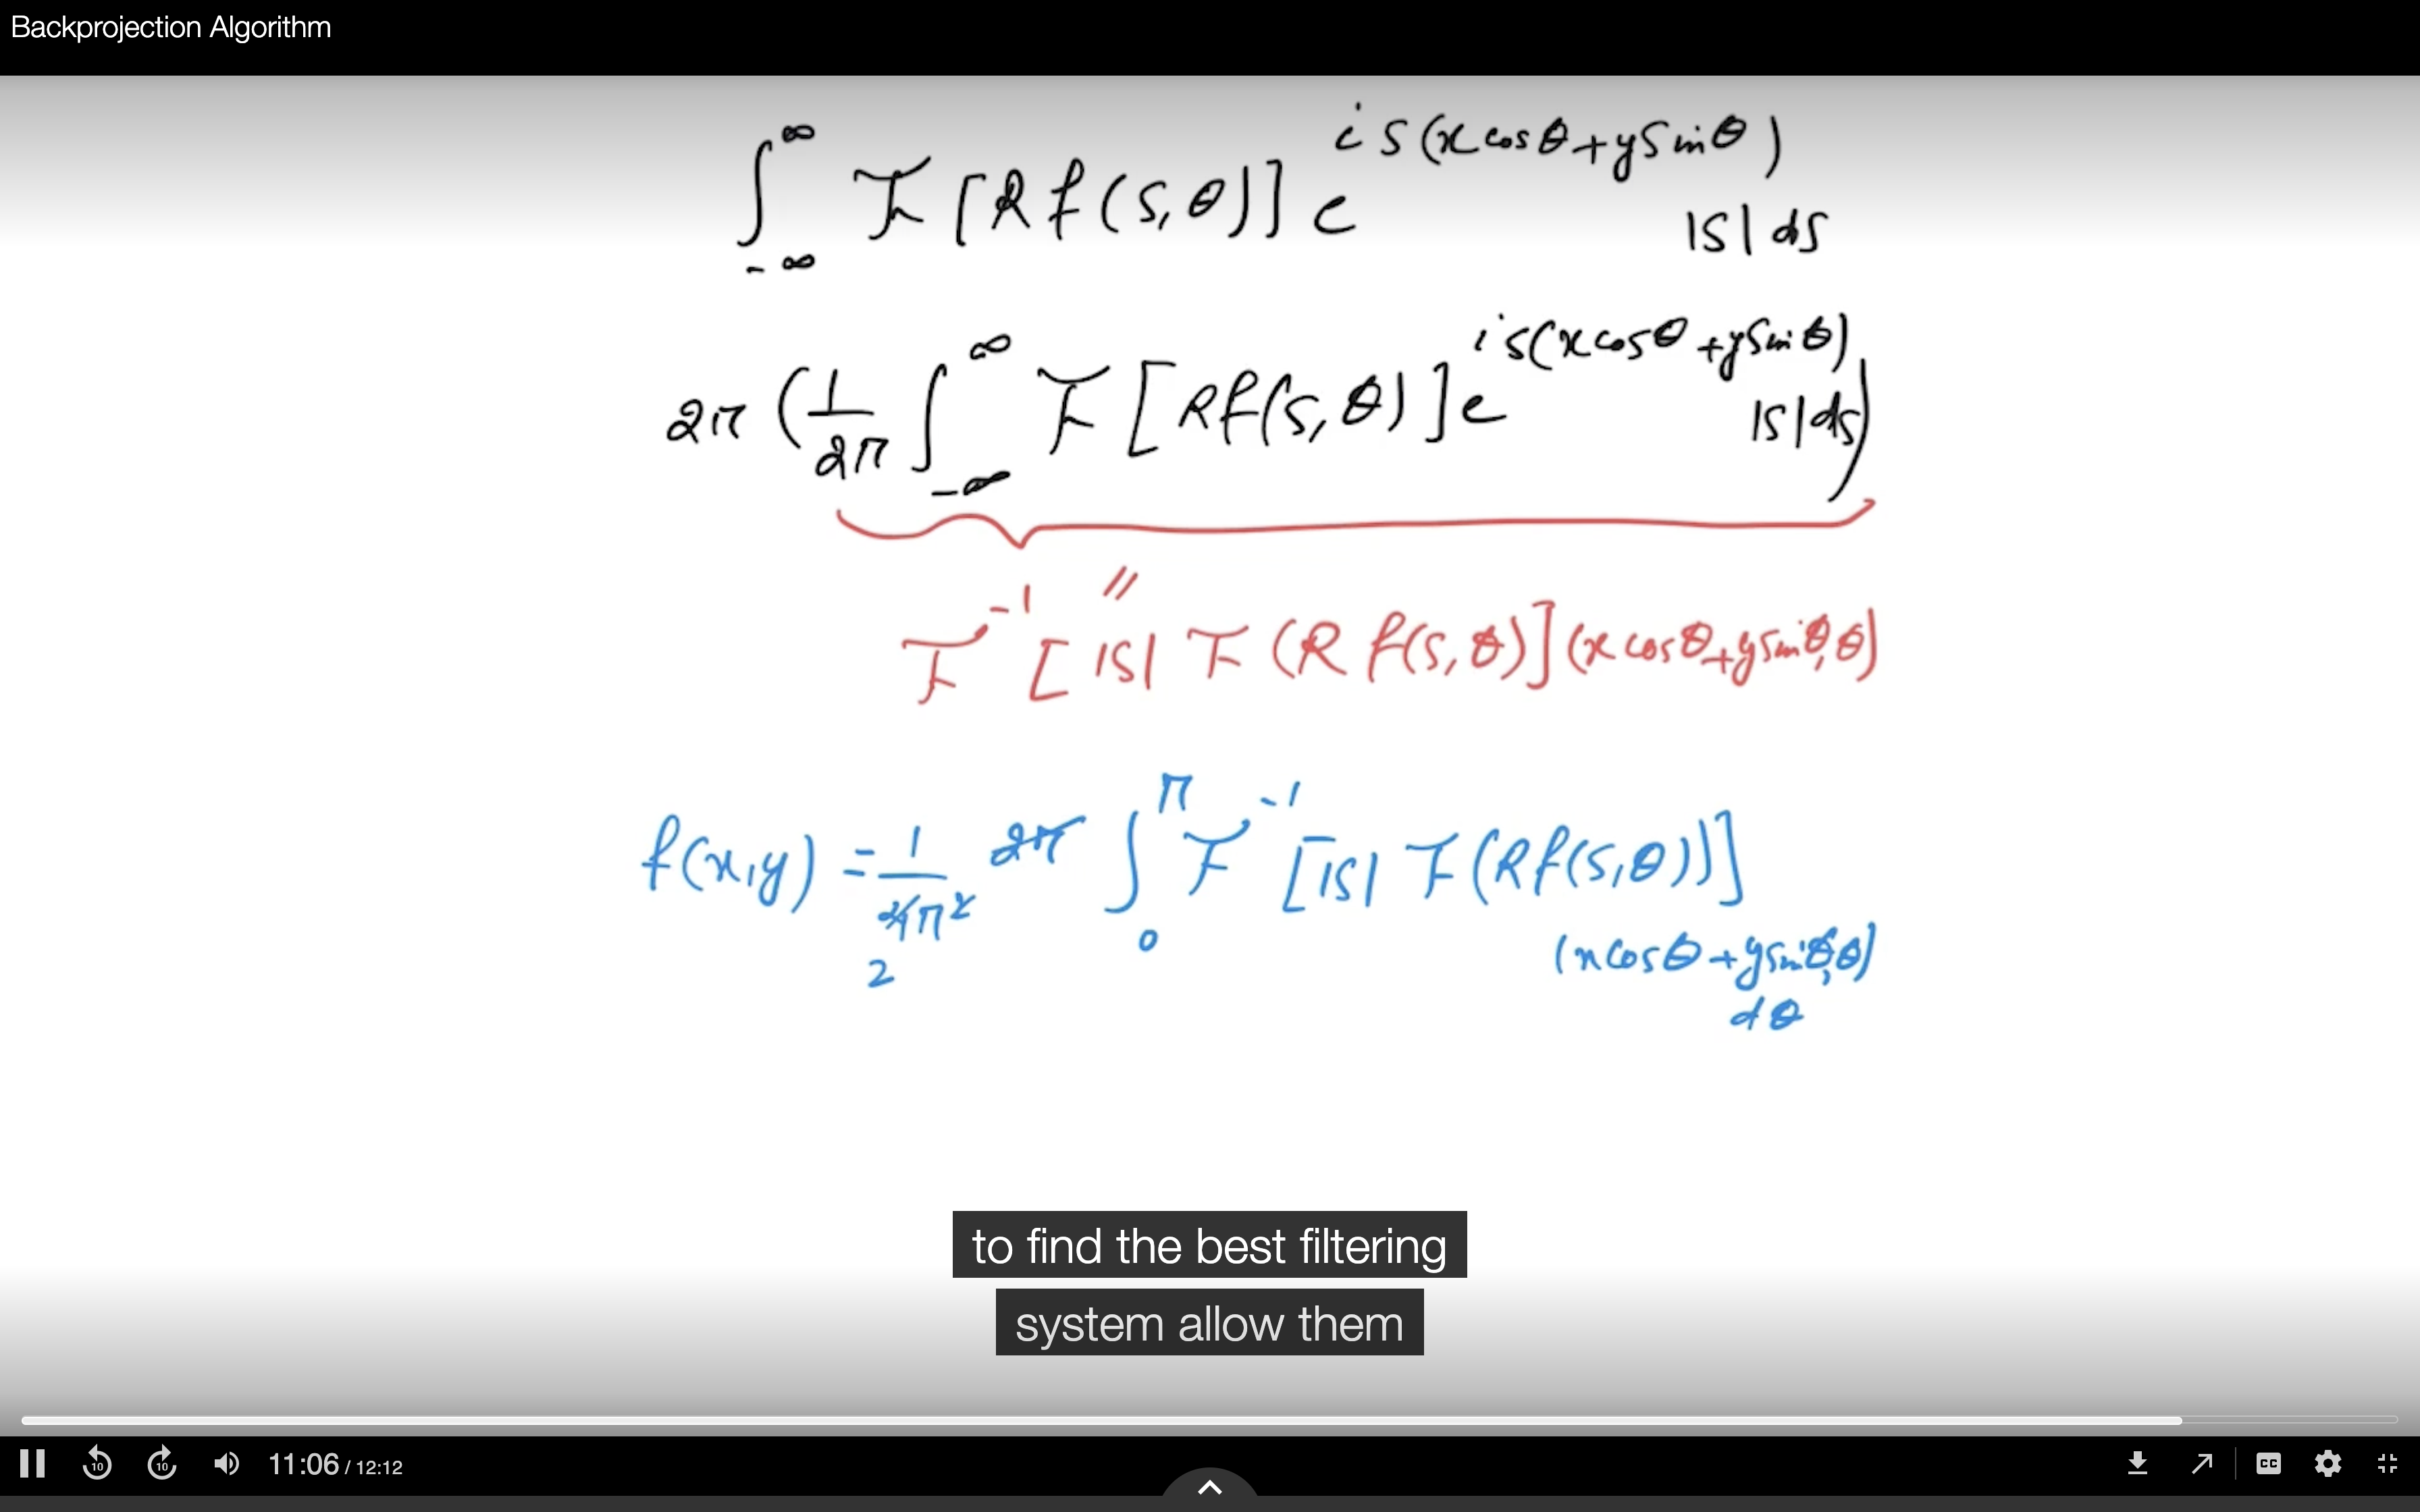 Backprojection Algorithm
∫_{-∞}^{∞} ℱ[Rf(s,θ)] e^{is(x cosθ + y sinθ)} |s| ds
2π (1/2π ∫_{-∞}^{∞} ℱ[Rf(s,θ)] e^{is(x cosθ + y sinθ)} |s| ds)
//
ℱ^{-1} [|s| ℱ(Rf(s,θ)] (x cosθ + y sinθ, θ)
f(x,y) = 1/4π² 2π ∫_0^π ℱ^{-1} [|s| ℱ(Rf(s,θ))]
2
(x cosθ + y sinθ, θ)
dθ
to find the best filtering
system allow them
10 10 11:06 / 12:12 CC